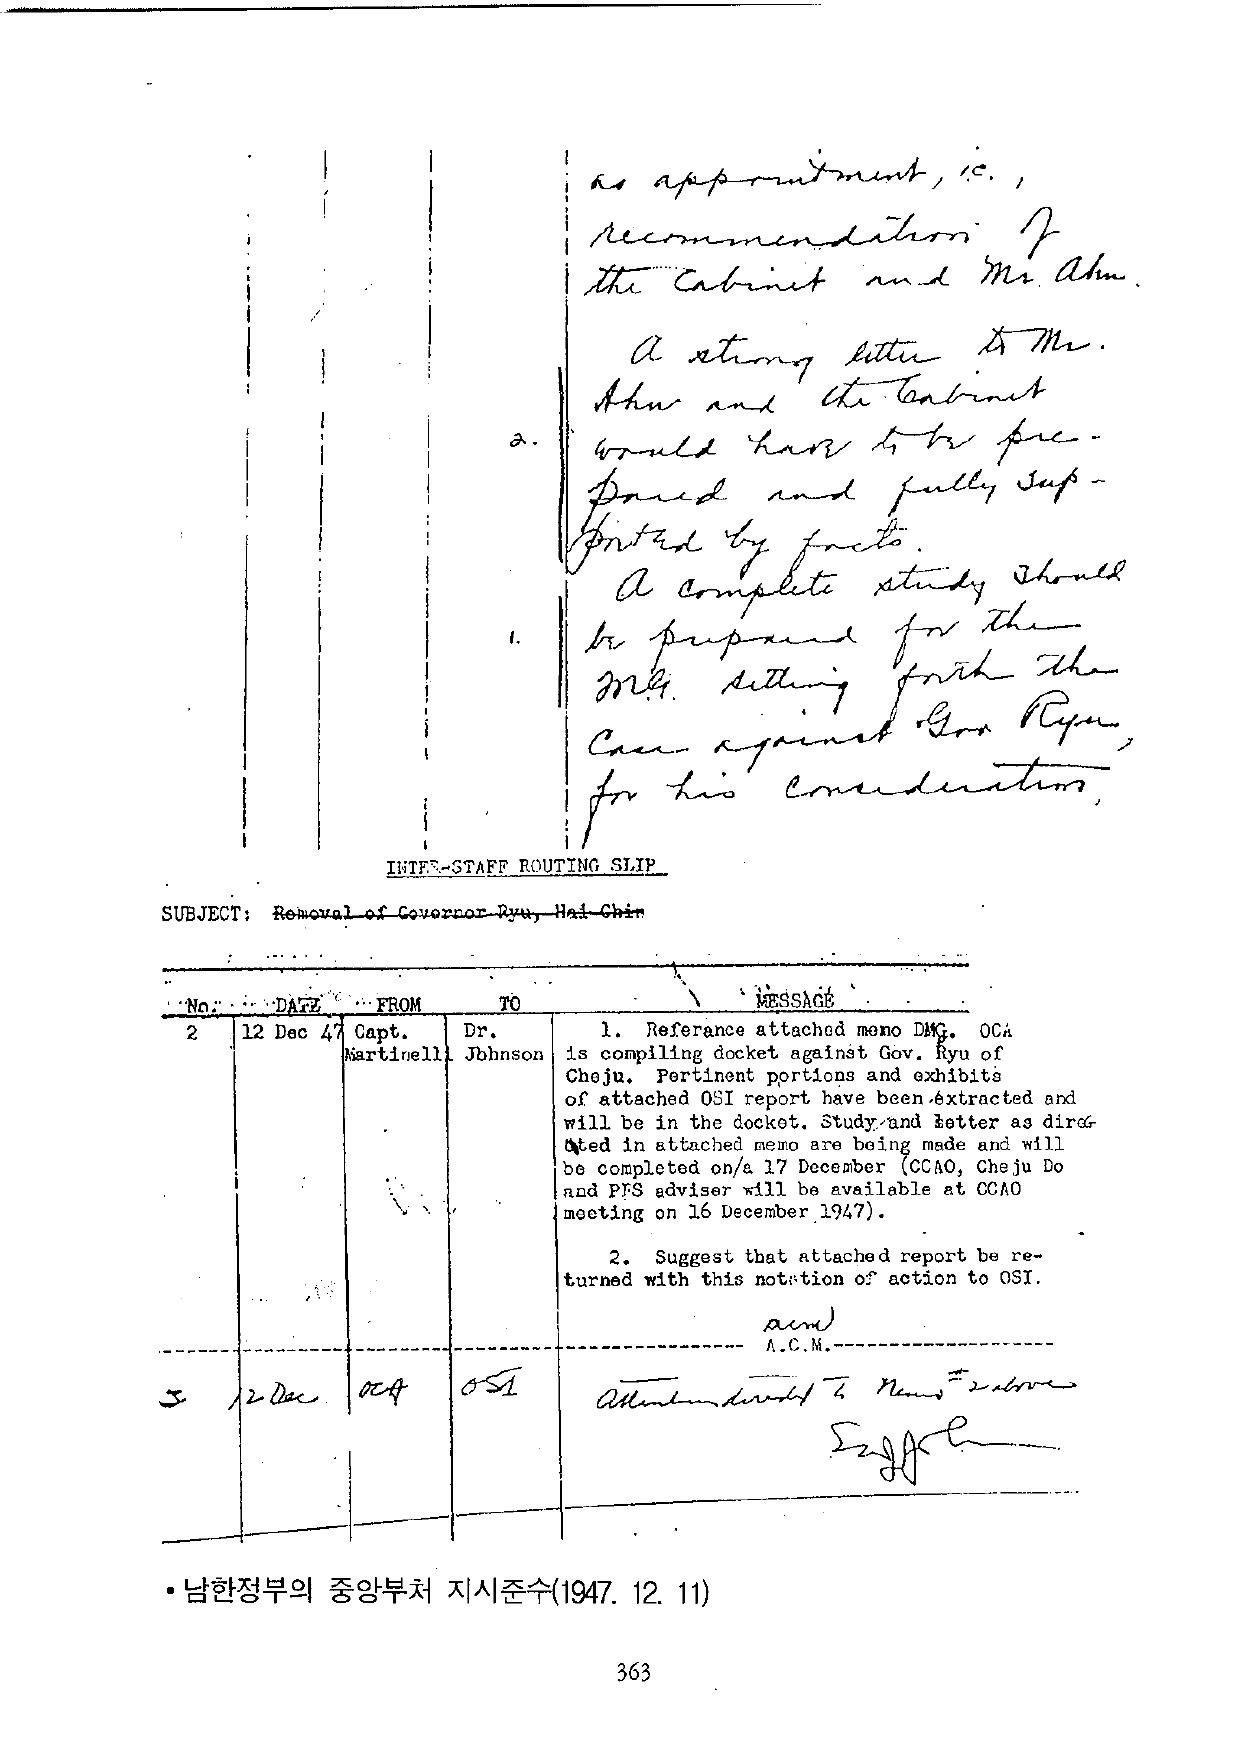 as appointment, i.e.,
recommendation of
the Cabinet and Mr. Ahn.
A strong letter to Mr.
Ahn and the Cabinet
2. would have to be pre-
pared and fully sup-
ported by facts.
A complete study should
1. be prepared for the
M.G. setting forth the
Case against Gov Ryu,
for his consideration.
INTER-STAFF ROUTING SLIP
SUBJECT: Removal of Governor Ryu, Hai Chin
No. DATE FROM TO MESSAGE
2 12 Dec 47 Capt. Dr. 1. Referance attached memo DMG. OCA
Martinell Johnson is compiling docket against Gov. Ryu of
Cheju. Pertinent portions and exhibits
of attached OSI report have been extracted and
will be in the docket. Study and letter as direc-
ted in attached memo are being made and will
be completed on/a 17 December (CCAO, Cheju Do
and PFS adviser will be available at CCAO
meeting on 16 December 1947).
2. Suggest that attached report be re-
turned with this notation of action to OSI.
acm
A.C.M.
3 12 Dec OCA OSI Attention directed to Memo #2 above
• 남한정부의 중앙부처 지시준수(1947. 12. 11)
363